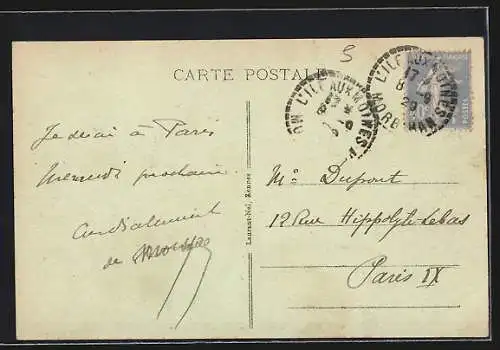 5
CARTE POSTALE
L'ILE AUX MOINES
MORBIHAN
17
8-9
29
L'ILE AUX MOINES
Je serai à Paris
Mercredi prochain
Cordialement
de
Laurent-Nel, Rennes
Mr Dupont
12 Rue Hippolyte Lebas
Paris IX